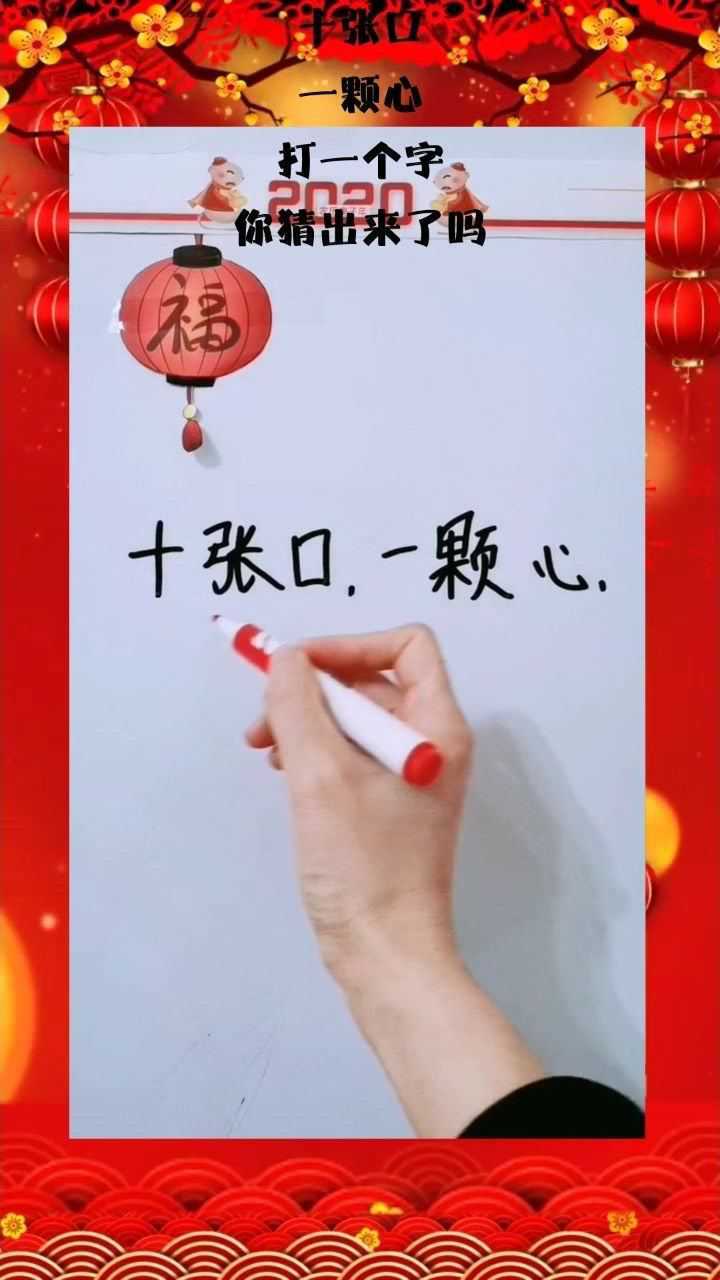 十张口
一颗心
打一个字
2020
你猜出来了吗
福
十张口,一颗心.